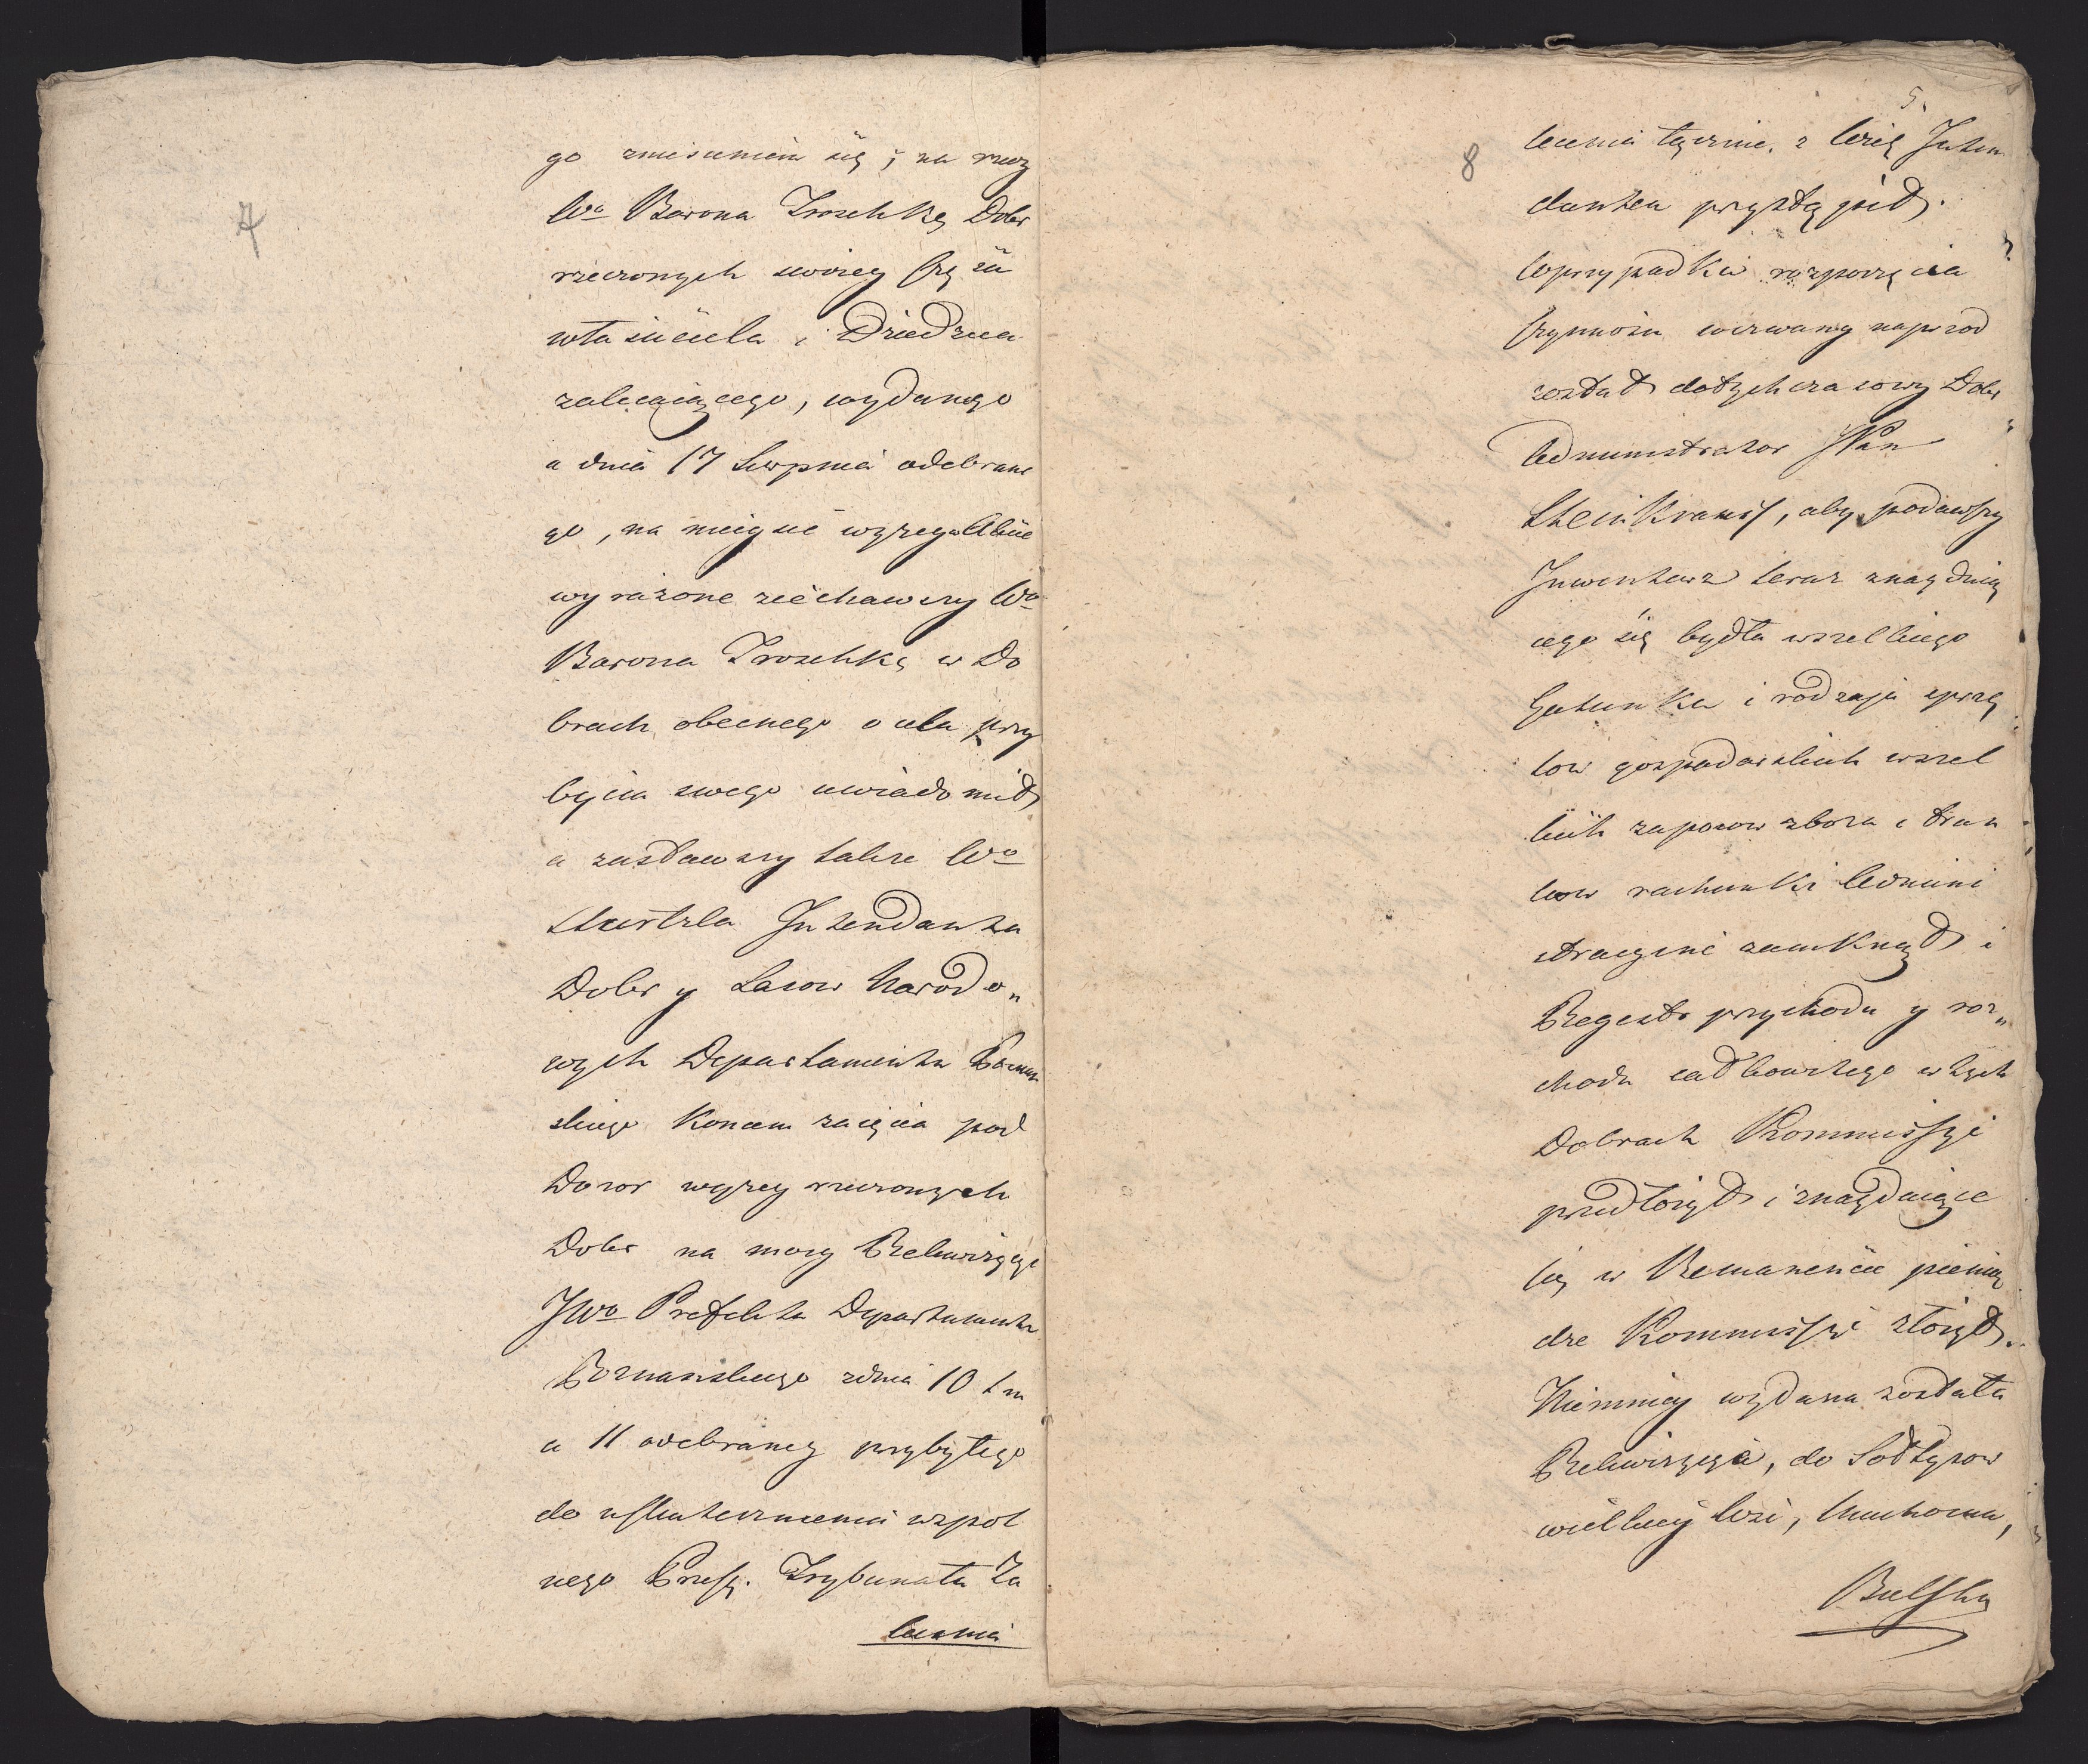 7
go zniesieniem się i na rzecz
Wo Barona Troschkę Dobr
rzeczonych iako
właściciela i Dziedzica
zalecaiącego, wydanego
a dnia 17 Sierpnia odebrane
go, na mieysce wyżey
wyrażone ziechawszy Wo
Barona Troschkę w Do
brach obecnego o celu przy
bycia swego uwiadomił,
a zastawszy także Wo
Intendanta
Dobr y Lasow Narodo„
wych Departamentu Poznan
skiego koncem zaięcia pod
Dozor wyżey rzeczonych
Dobr na mocy Rekwizycyi
JWo Prefekta Departamentu
Poznanskiego z dnia 10 t m
a 11 odebraney przybyłego
do uskutecznienia wspol
nego Prześ. Trybunału Za
lecenia
5.
8
lecenia łącznie z tegoż Inten
danta przystąpił.
W przypadku rozpoczęcia
czynności wezwany naprzod
został dotychczasowy Dobr
Administrator JPan
Steinkrauss, aby podawszy
Inwentarz teraz znayduią
cego się bydła wszelkiego
Gatunku i rodzaju sprzę
tow gospodarskich wszel
kich zapasow zboża i trun
kow rachunki Admini
stracyine zamknął i
Regestr przychodu y roz„
chodu całkowitego w tych
Dobrach Kommissyi
przedłożył i znayduiące
się w Remanencie pienią
dze Kommissyi złożył.
Niemniey wydana została
Rekwizycya, do Sołtysow
wielkiey Wsi,